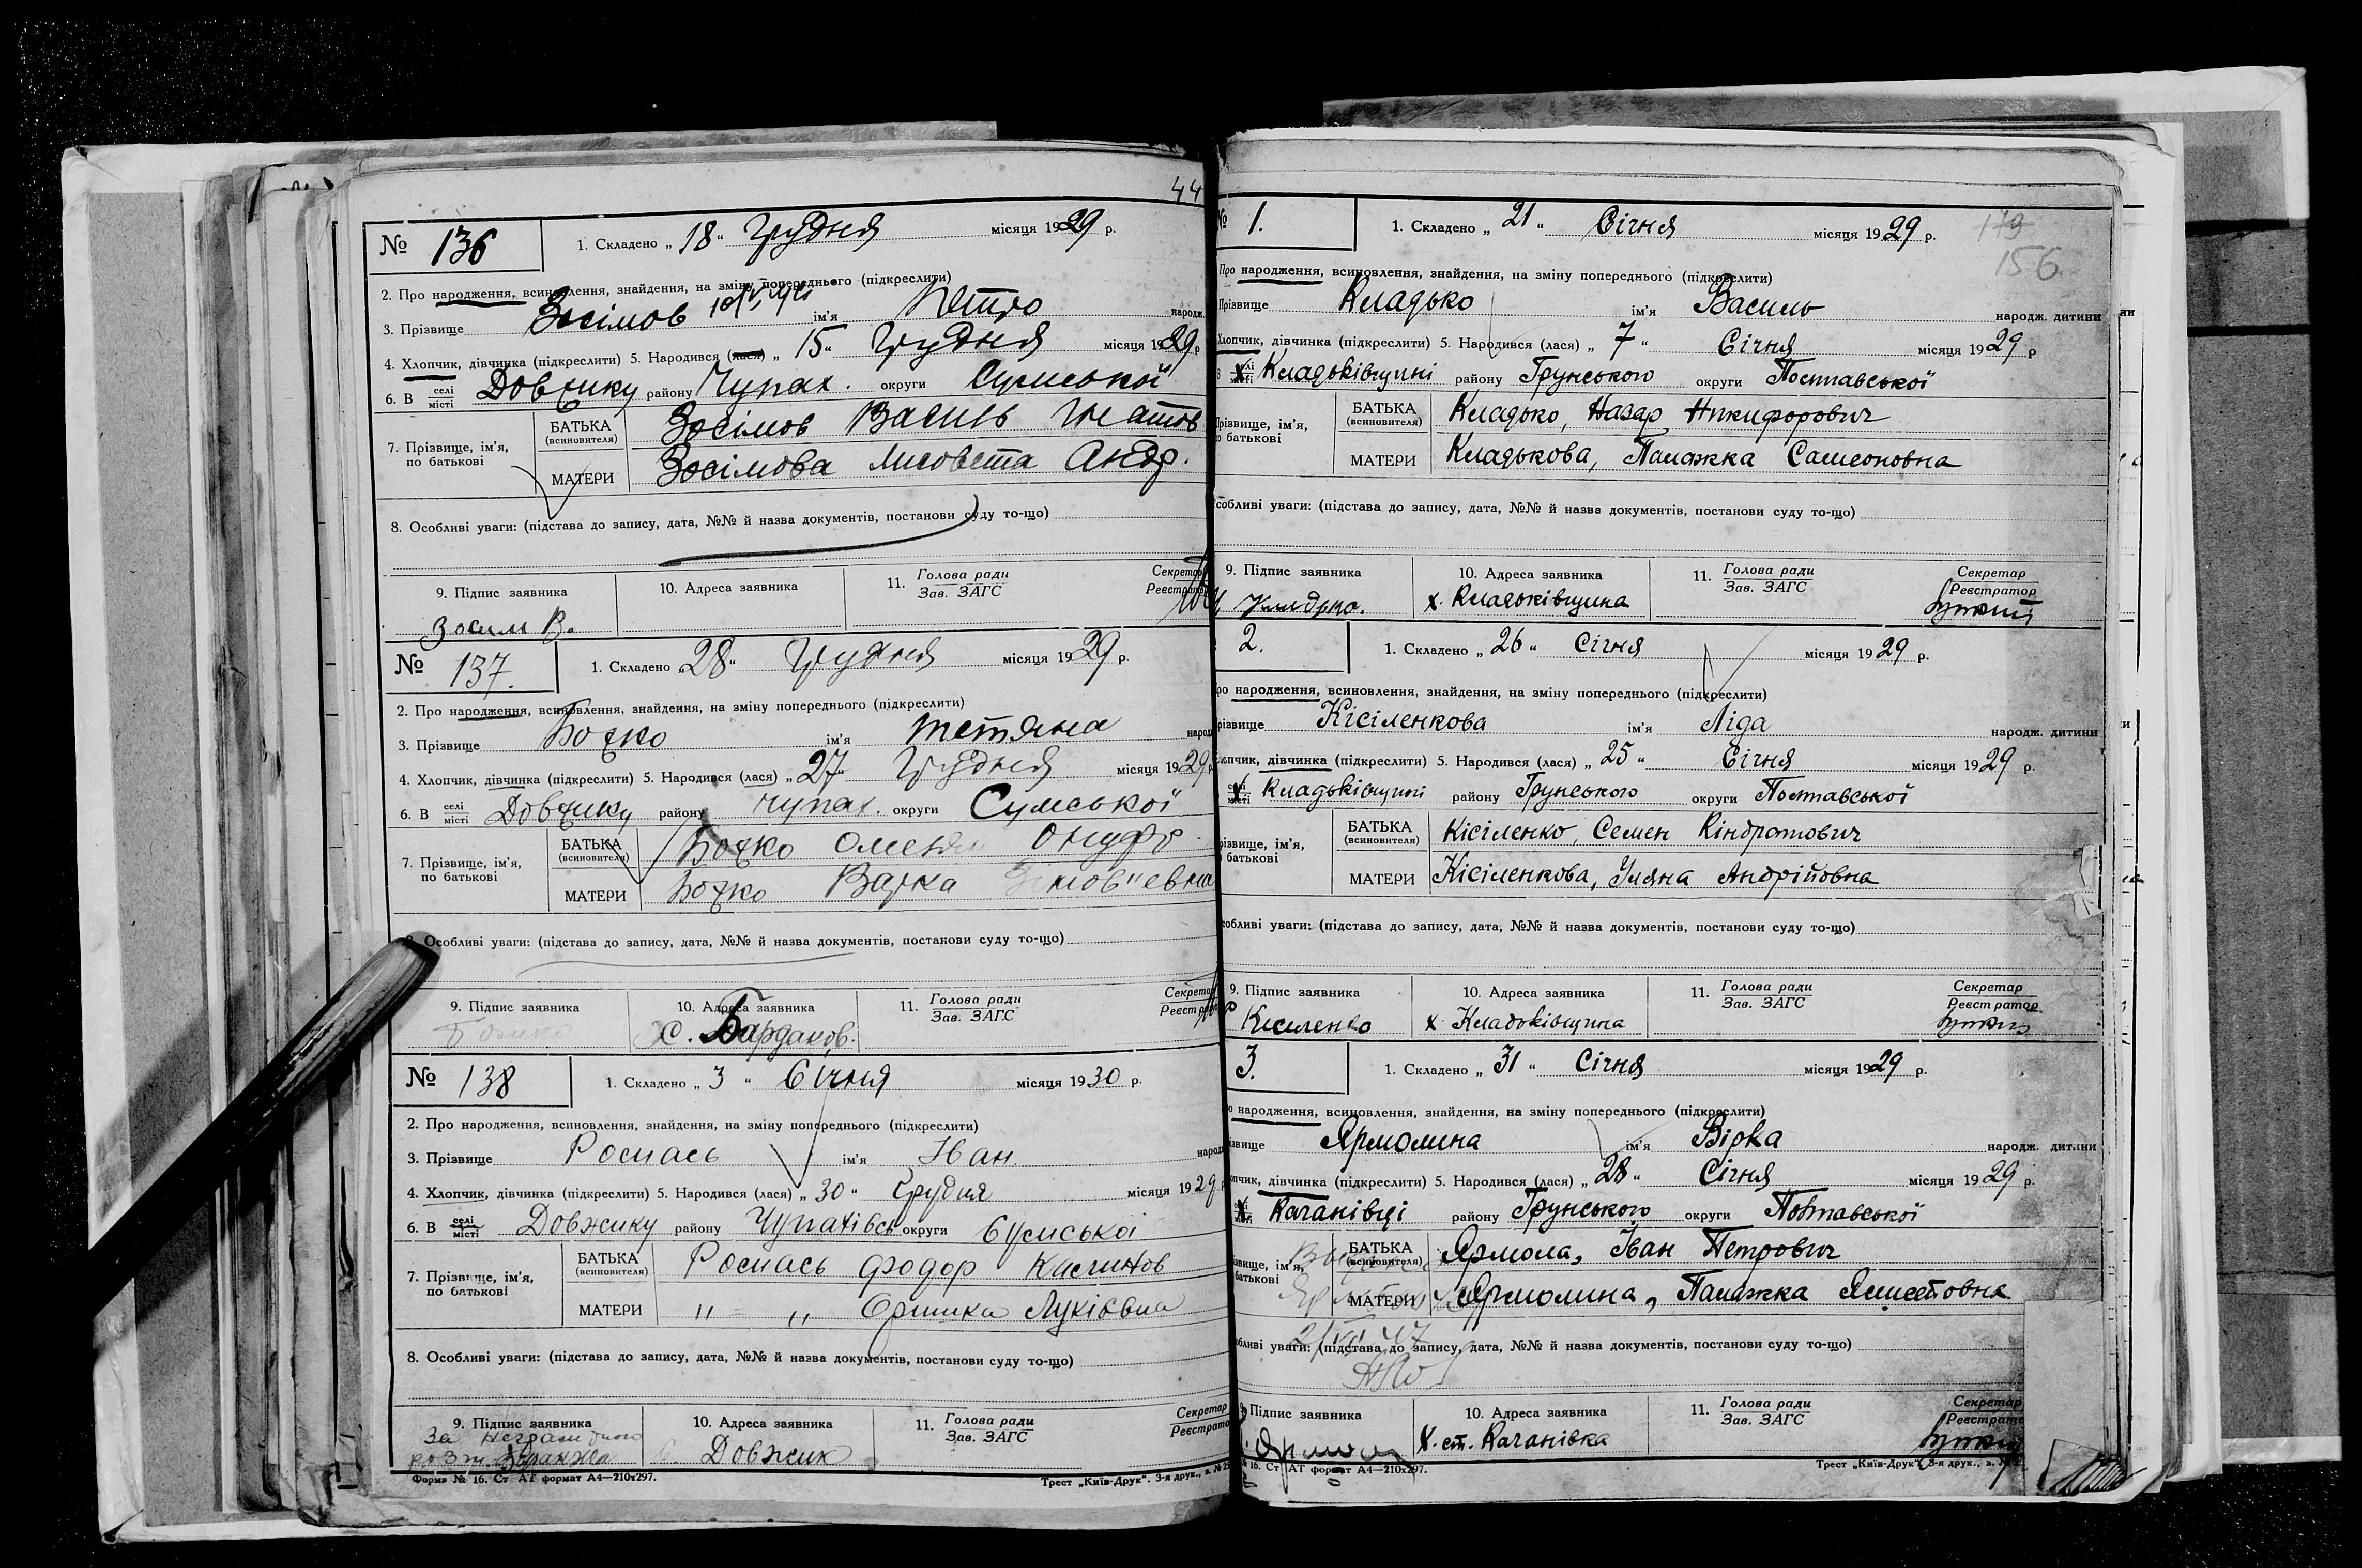 44
№ 136
1. Складено „ 18 “ Грудня місяця 1929 р.
2. Про народження, всиновлення, знайдення, на зміну попереднього (підкреслити)
3. Прізвище Зосімов ім'я Петро народж.
4. Хлопчик, дівчинка (підкреслити) 5. Народився (лася) „ 15 “ Грудня місяця 1929 р
6. В селі місті Довжику району Чупах. округи Сумської
7. Прізвище, ім'я, по батькові
БАТЬКА (всиновителя) Зосімов Василь Игнатов
МАТЕРИ Зосімова Лисовета Андр.
8. Особливі уваги: (підстава до запису, дата, №№ й назва документів, постанови суду то-що)
9. Підпис заявника 10. Адреса заявника 11. Голова ради Зав. ЗАГС Секретар Реєстратор
Зосим В.
№ 137.
1. Складено „ 28 “ Грудня місяця 1929 р.
2. Про народження, всиновлення, знайдення, на зміну попереднього (підкреслити)
3. Прізвище Божко ім'я Тетяна народ
4. Хлопчик, дівчинка (підкреслити) 5. Народився (лася) „ 27 “ Грудня місяця 1929 р
6. В селі місті Довжику району Чупах. округи Сумської
7. Прізвище, ім'я, по батькові
БАТЬКА (всиновителя) Божко Онуфр
МАТЕРИ Божко Варка
8. Особливі уваги: (підстава до запису, дата, №№ й назва документів, постанови суду то-що)
9. Підпис заявника 10. Адреса заявника 11. Голова ради Зав. ЗАГС Секретар Реєстратор
Божко х. Бардаков.
№ 138
1. Складено „ 3 “ Січня місяця 1930 р.
2. Про народження, всиновлення, знайдення, на зміну попереднього (підкреслити)
3. Прізвище Роснась ім'я Іван. народ
4. Хлопчик, дівчинка (підкреслити) 5. Народився (лася) „ 30 “ Грудня місяця 1929 р
6. В селі місті Довжику району Чупахівсь округи Сумської
7. Прізвище, ім'я, по батькові
БАТЬКА (всиновителя) Роснась Фодор
МАТЕРИ „ = „ Оришка Лукієвна
8. Особливі уваги: (підстава до запису, дата, №№ й назва документів, постанови суду то-що)
9. Підпис заявника 10. Адреса заявника 11. Голова ради Зав. ЗАГС Секретар Реєстратор
За неграмотного
розп. с. Довжик
Форма № 16. Ст АТ формат А4—210х297. Трест „Київ-Друк“. 3-я друк., з. № 25
№ 1.
1. Складено „ 21 “ Січня місяця 1929 р.
179
156
Про народження, всиновлення, знайдення, на зміну попереднього (підкреслити)
Прізвище Кладько ім'я Василь народж. дитини
Хлопчик, дівчинка (підкреслити) 5. Народився (лася) „ 7 “ Січня місяця 1929 р
В селі місті х Кладьківщині району Грунського округи Полтавської
Прізвище, ім'я, по батькові
БАТЬКА (всиновителя) Кладько, Назар Никифорович
МАТЕРИ Кладькова, Палажка Самсоновна
собливі уваги: (підстава до запису, дата, №№ й назва документів, постанови суду то-що)
9. Підпис заявника 10. Адреса заявника 11. Голова ради Зав. ЗАГС Секретар Реєстратор
Кладько. х. Кладьківщина
2.
1. Складено „ 26 “ Січня місяця 1929 р.
ро народження, всиновлення, знайдення, на зміну попереднього (підкреслити)
різвище Кісіленкова ім'я Ліда народж. дитини
опчик, дівчинка (підкреслити) 5. Народився (лася) „ 25 “ Січня місяця 1929 р.
селі місті х Кладьківщині району Грунського округи Полтавської
різвище, ім'я, батькові
БАТЬКА (всиновителя) Кісіленко, Семен Кіндратович
МАТЕРИ Кісіленкова, Уляна Андрійовна
собливі уваги: (підстава до запису, дата, №№ й назва документів, постанови суду то-що)
9. Підпис заявника 10. Адреса заявника 11. Голова ради Зав. ЗАГС Секретар Реєстратор
Кисиленко х Кладьківщина
3.
1. Складено „ 31 “ Січня місяця 1929 р.
о народження, всиновлення, знайдення, на зміну попереднього (підкреслити)
ізвище Ярмолина ім'я Вірка народж. дитини
пчик, дівчинка (підкреслити) 5. Народився (лася) „ 28 “ Січня місяця 1929 р.
селі місті х Качанівці району Грунського округи Полтавської
ізвище, ім'я, батькові
БАТЬКА (всиновителя) Ярмола, Іван Петрович
МАТЕРИ Ярмолина, Палажка
обливі уваги: (підстава до запису, дата, №№ й назва документів, постанови суду то-що)
Підпис заявника 10. Адреса заявника 11. Голова ради Зав. ЗАГС Секретар Реєстратор
х. ст. Качанівка
№ 16. Ст АТ формат А4—210х297. Трест „Київ-Друк“, 3-я друк., з. №